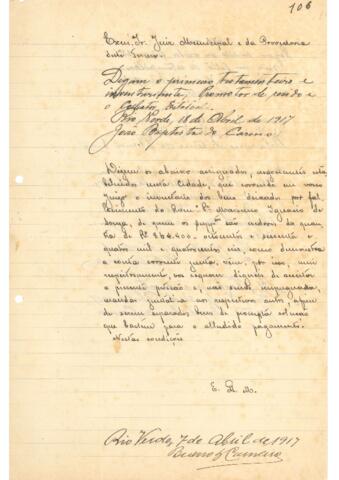 106
Exmo. Sr. Juiz Municipal e da Provedoria
deste Termo
Digam o primeiro testamenteiro e
inventariante, Promotor de residuo e
o Collector Estadual.
Rio Verde, 18 de Abril de 1917
João Baptista do Carmo
Dizem os abaixo assignados, negociantes esta-
belecidos nesta Cidade, que correndo em vosso
Juizo o inventario dos bens deixados por fal-
lecimento do Rem. P. Marianno Ignacio de
Souza, de quem os supp. são credores da quan-
tia de Rs 164.400, cento e sessenta e
quatro mil e quatrocentos reis, como demonstra
a conta corrente junta, vem, por isso, mui
respeitosamente, vos requerer digneis de acceitar
a presente petição e, não sendo impugnada,
mandar juntal-a aos respectivos autos, afim
de serem separados bens de prompta solução
que bastem para o alludido pagamento.
Nestas condições
E. R. M.
Rio Verde, 7 de Abril de 1917
Bueno & Carneiro